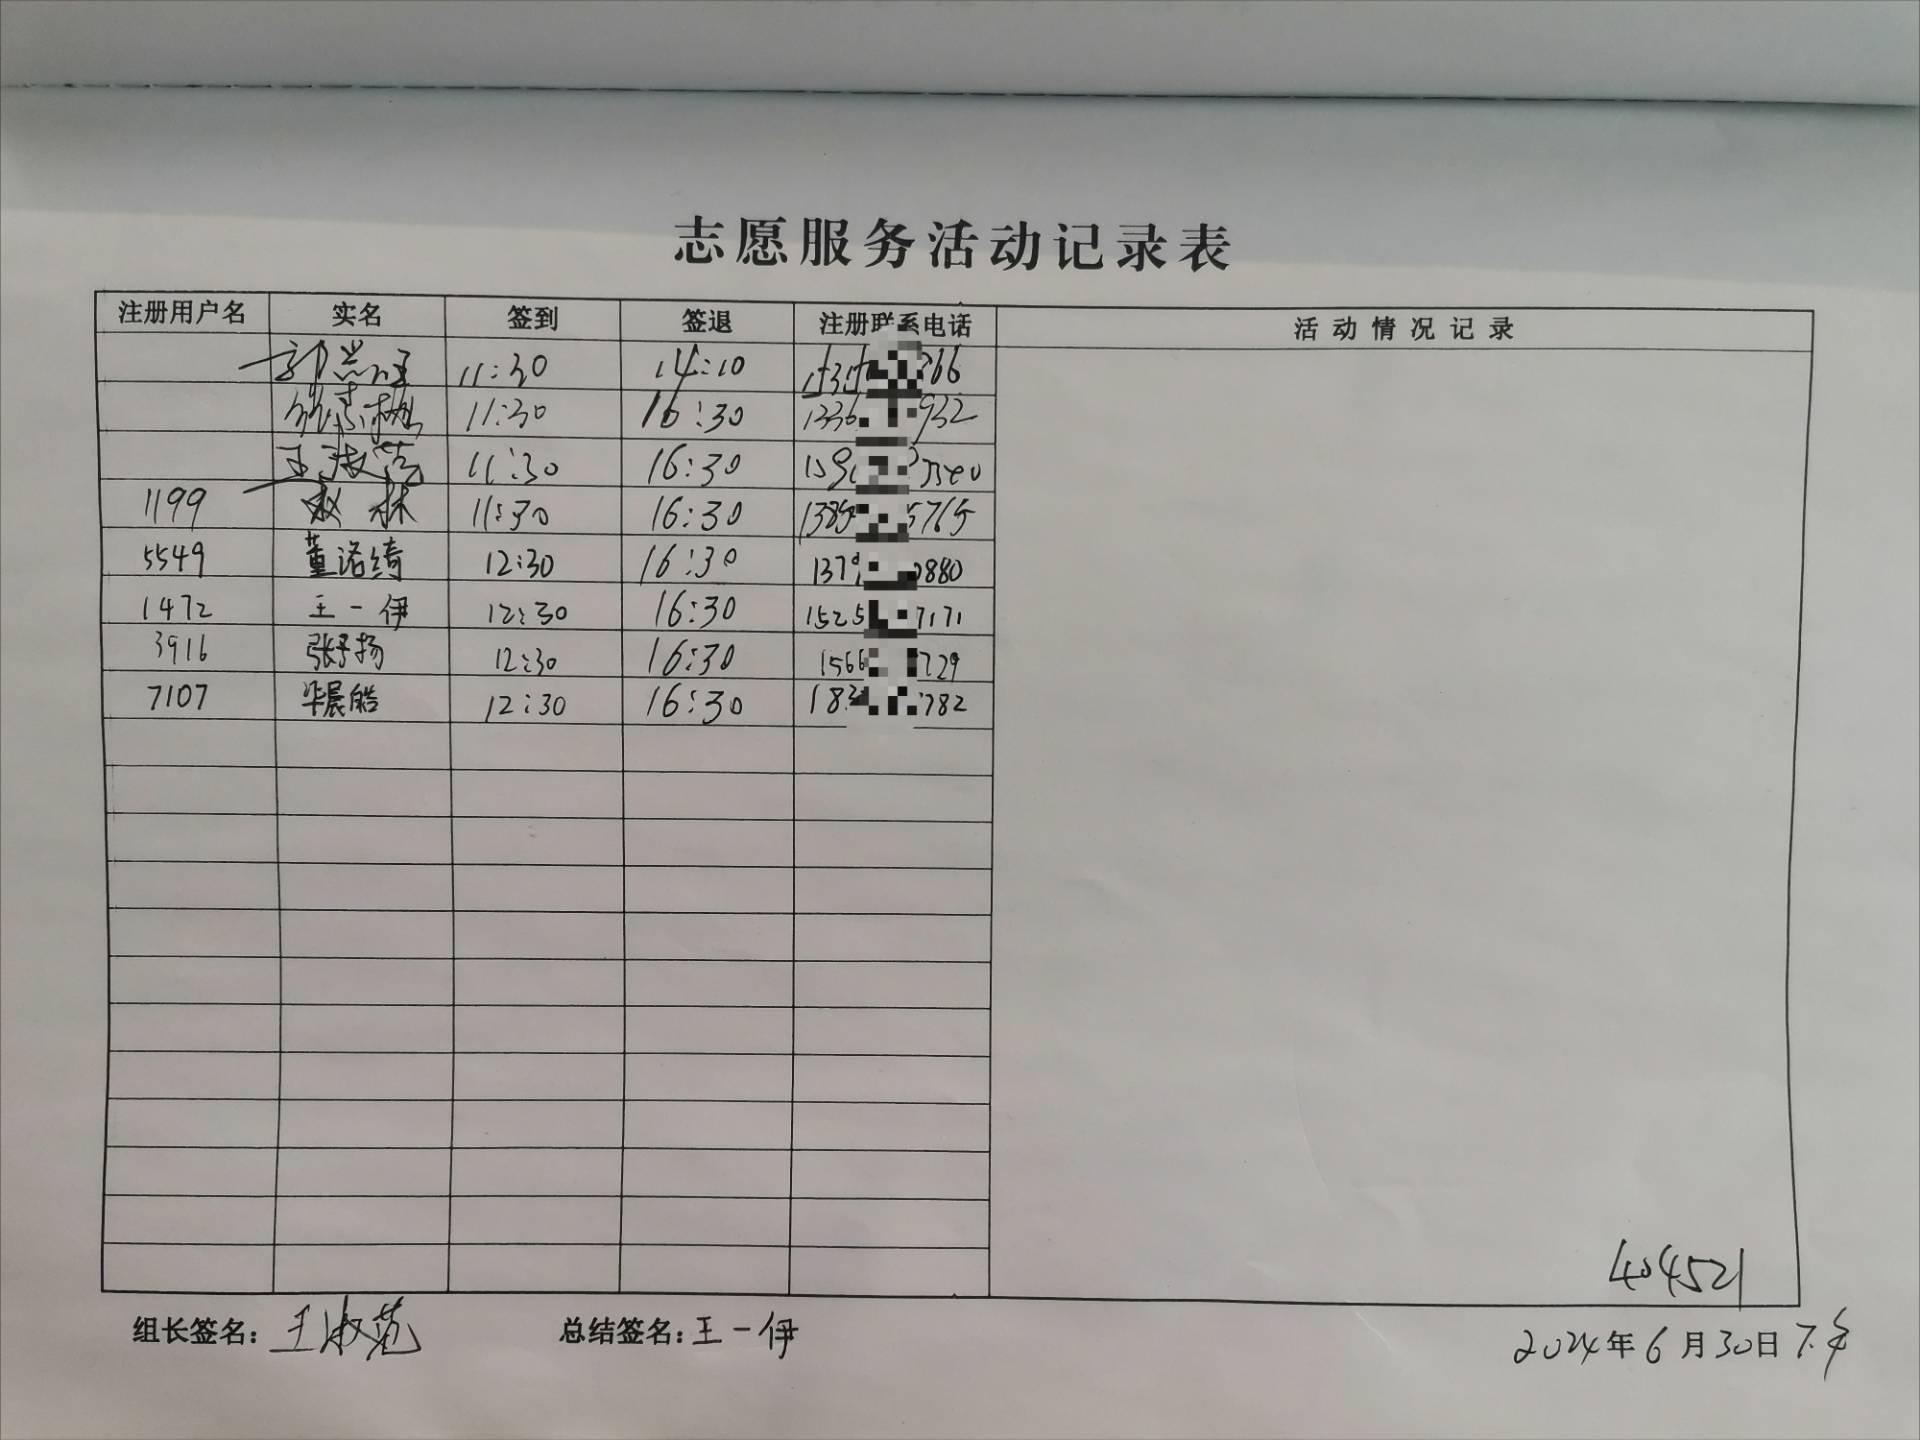 志愿服务活动记录表
注册用户名 实名 签到 签退 注册联系电话 活动情况记录
11:30 14:10 266
11:30 16:30 1336 932
王淑苑 11:30 16:30 159
1199 赵林 11:30 16:30 1385 5765
5549 董诺绮 12:30 16:30 137 0880
1472 王一伊 12:30 16:30 1525 7171
3916 张予扬 12:30 16:30 156 729
7107 华晨皓 12:30 16:30 183 782
404521
组长签名：王淑苑 总结签名：王一伊
2024年6月30日下午